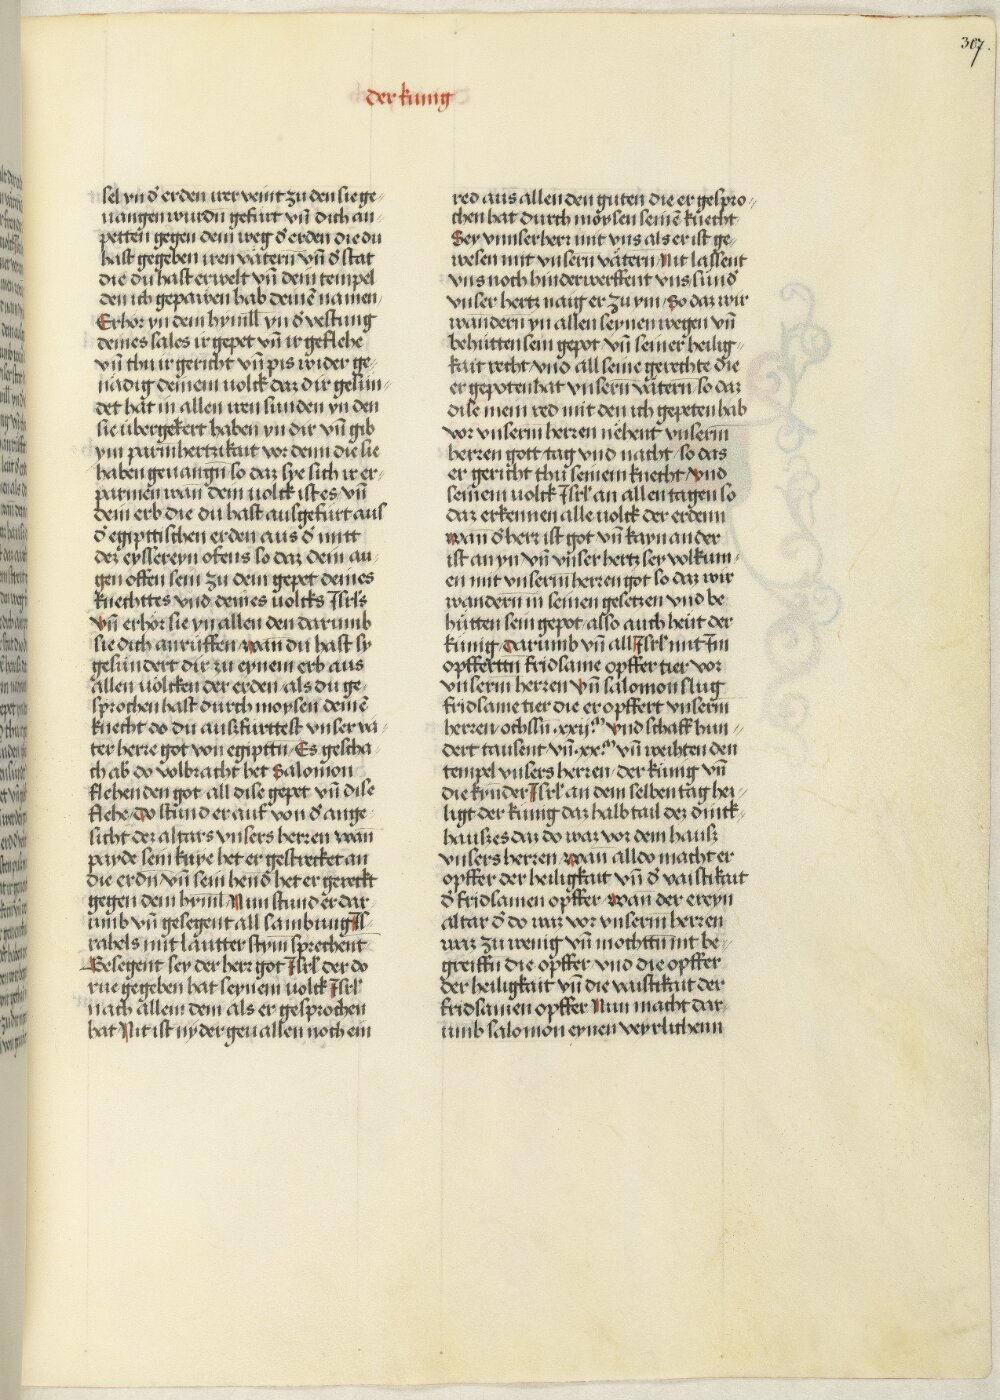 307.
der kunig
sel yn d' erden irer veint zu den sie ge-
uangen wurdn gefurt vn̄ dich an-
petten gegen dem weg d' erden die du
hast gegeben iren vätern vn̄ d' stat
die du hast erwelt vn̄ dem tempel
den ich gepawen hab deinē namen
Erhör yn dem hymill yn d' vestung
deines sales ir gepet vn̄ ir geflehe
vn̄ thu ir gericht vn̄ pis wider ge-
nädig deinem uolck daz dir gesün-
det hat in allen iren sunden yn den
sie übergekert haben yn dir vn̄ gib
ym parmhertzikait vor denn die sie
haben geuangn so daz sye sich ir er-
parmen wan dem uolck ist es vn̄
dem erb die du hast ausgefurt aus
d' egipttischen erden aus d' mitt
dez eyssereyn ofens so daz dein au-
gen offen sein zu dem gepet deines
knechttes vnd deines uolcks Isrl's
vn̄ erhör sie yn allen den darumb
sie dich anrüffen wan du hast sy
gesundert dir zu eynem erb aus
allen uölcken der erden als du ge-
sprochen hast durch moysen deinē
knecht do du auszfurttest vnser vä-
ter herre got von egipttn Es gescha-
ch ab' do volbracht het Salomon
flehenden got all dise gepet vn̄ dise
flehe do stund er auf von d' ange-
sicht dez altars vnsers herren wan
payde sein knye het er gestrecket an
die erdn vn̄ sein hend' het er gereckt
gegen dem hyml Nun stund er dar-
umb vn̄ gesegent all sambung Is-
rahels mit lautter stym sprechent
Gesegent sey der herr got Isrl' der do
rue gegeben hat seynem uolck Isrl'
nach allem dem als er gesprochen
hat Nit ist nyder geuallen noch ein
red aus allen den guten die er gespro-
chen hat durch moysen seinē knecht
Sey vnnser herr mit vns als er ist ge-
wesen mit vnsern vätern Nit lassent
vns noch hinderwerffent vns sund'
vnser hertz naig er zu ym So daz wir
wandern yn allen seynen wegen vn̄
behütten sein gepot vn̄ seiner heilig-
kait recht vnd all seine gerechte die
er gepoten hat vnsern vätern so daz
dise mein red mit den ich gepeten hab
vor vnserm herren nehent vnserm
herren gott tag vnd nacht so das
er gericht thu seinem knecht vnd
seinem uolck Isrl' an allen tagen so
daz erkennen alle uolck der erdenn
wan d' herr ist got vn̄ kayn ander
ist an yn vn̄ vnser hertz sey volkum-
en mit vnserm herren got so daz wir
wandern in seinen gesetzen vnd be
hütten sein gepot also auch heüt der
kunig Darumb vn̄ all Isrl' mit Im
opfferttn fridsame opffer tier vor
vnserm herren Vn̄ salomon slug
fridsame tier die er opffert vnserm
herren ochssn .xxij.m vnd schaff hun-
dert tausent vn̄ .xx.m vn̄ weihten den
tempel vnsers herren der kunig vn̄
die kynder Isrl' an dem selben tag hei-
ligt der kunig daz halbtail dez d'mitt-
hauszes daz do waz vor dem hausz
vnsers herren wan alldo macht er
opffer der heiligkait vn̄ d' vaistikait
d' fridsamen opffer wan der ereyn
altar d' do waz vor vnserm herren
waz zu wenig vn̄ mochttn nit be-
greiffn die opffer vnd die opffer
der heiligkait vn̄ die vaistikait der
fridsamen opffer Nun macht dar-
umb salomon eynen veyrlichenn